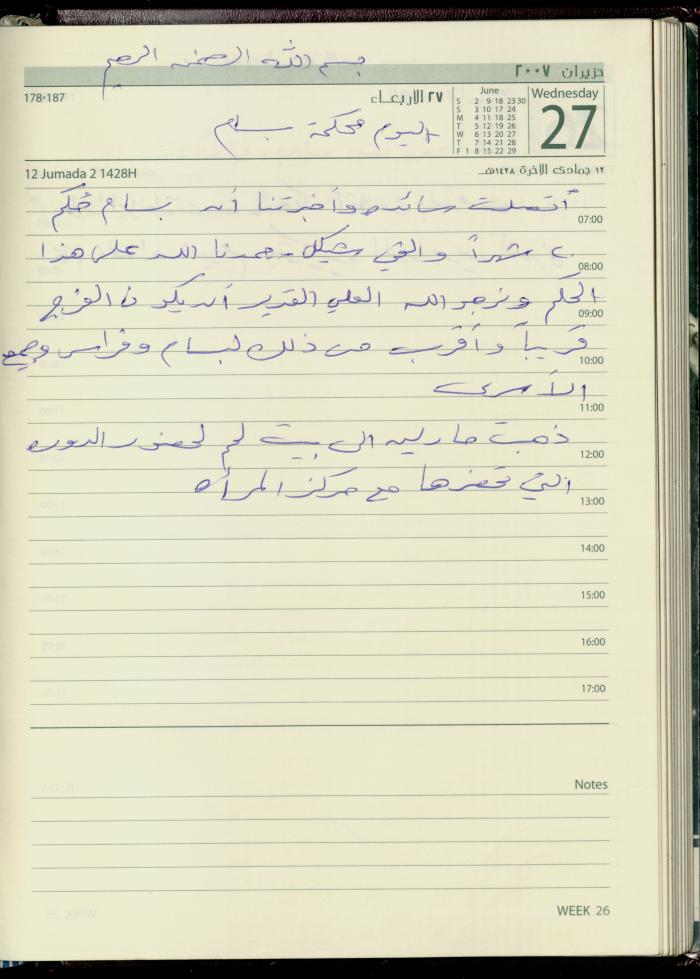 بسم الله الرحمن الرحيم
حزيران ٢٠٠٧
178-187
٢٧ الأربعاء
June
Wednesday
S 2 9 16 23 30
S 3 10 17 24
M 4 11 18 25
T 5 12 19 26
W 6 13 20 27
T 7 14 21 28
F 1 8 15 22 29
27
اليوم محكمة بسام
12 Jumada 2 1428H
١٢ جمادى الآخرة ١٤٢٨هـ
أتصلت سائده وأخبرتنا أنه بسام حُكم
07:00
شهراً والفي شيكل - حمدنا الله على هذا
08:00
الحكم ونرجو الله العلي القدير أن يكون الفرج
09:00
قريباً وأقرب من ذلك لبسام وفراس وجميع
10:00
الأسرى
11:00
ذهبت مارلين الى بيت لحم لحضور الدوره
12:00
التي تحضرها مع مركز المرأه
13:00
14:00
15:00
16:00
17:00
Notes
WEEK 26